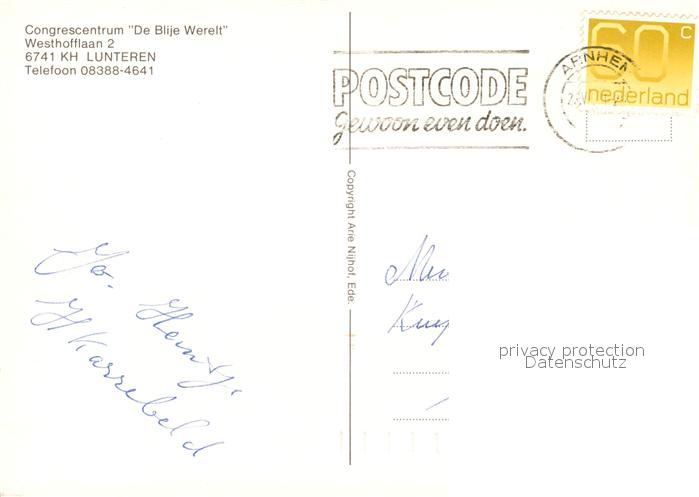 Congrescentrum "De Blije Werelt"
Westhofflaan 2
6741 KH LUNTEREN
Telefoon 08388-4641
POSTCODE
gewoon even doen.
ARNHEM
60 c
nederland
Copyright Arie Nijhof, Ede.
Jo.
Karrebeld
privacy protection
Datenschutz